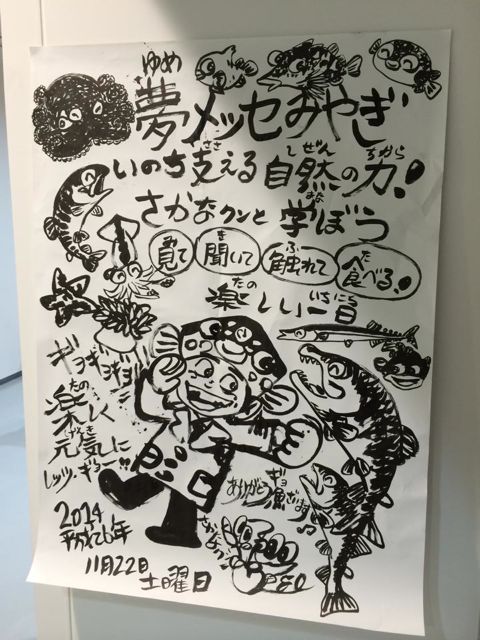 ゆめ
夢メッセみやぎ
ささ しぜん ちから
いのち支える 自然の力!
まな
さかなクンと 学ぼう
み き ふ た
見て 聞いて 触れて 食べる!
たの いちにち
楽しい一日
ギョギョギョッ
たの
楽しく
げんき
元気に
レッツ・ギョー
ありがとうギョざいます
2014
平成26年
11月22日 土曜日
さかなクン